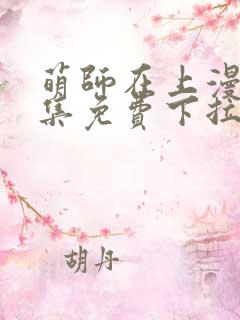 萌師在上漫
集免費下拉
胡丹